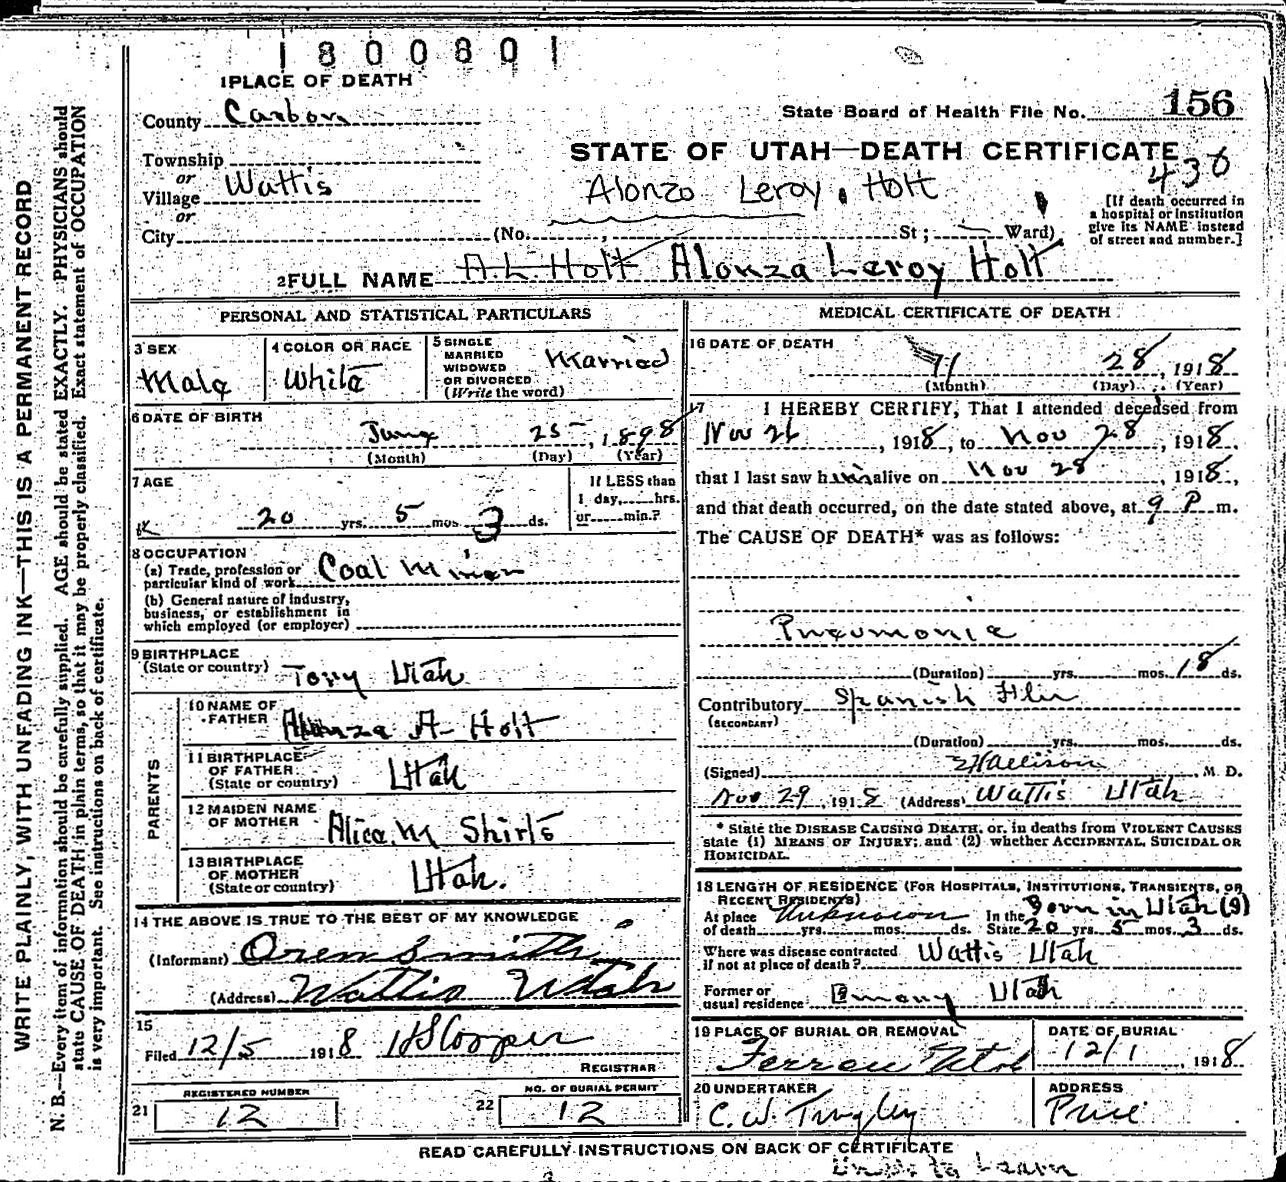 1800801
1 PLACE OF DEATH
County Carbon
State Board of Health File No. 156
STATE OF UTAH—DEATH CERTIFICATE
430
Township
or
Village Wattis
or
City
Alonzo Leroy Holt
(No. , St; Ward)
[If death occurred in
a hospital or institution
give its NAME instead
of street and number.]
2 FULL NAME A L Holt Alonza Leroy Holt
WRITE PLAINLY, WITH UNFADING INK—THIS IS A PERMANENT RECORD
N. B.—Every item of information should be carefully supplied. AGE should be stated EXACTLY. PHYSICIANS should
state CAUSE OF DEATH in plain terms, so that it may be properly classified. Exact statement of OCCUPATION
is very important. See instructions on back of certificate.
PERSONAL AND STATISTICAL PARTICULARS
3 SEX
Male
4 COLOR OR RACE
White
5 SINGLE
MARRIED
WIDOWED
OR DIVORCED
(Write the word)
Married
6 DATE OF BIRTH
June 25, 1898
(Month) (Day) (Year)
7 AGE
20 yrs. 5 mos 3 ds.
If LESS than
1 day, hrs.
or min.?
8 OCCUPATION
(a) Trade, profession or
particular kind of work Coal Miner
(b) General nature of industry,
business, or establishment in
which employed (or employer)
9 BIRTHPLACE
(State or country) Tory Utah
PARENTS
10 NAME OF
FATHER Alonza A Holt
11 BIRTHPLACE
OF FATHER
(State or country) Utah
12 MAIDEN NAME
OF MOTHER Alice M Shirts
13 BIRTHPLACE
OF MOTHER
(State or country) Utah.
14 THE ABOVE IS TRUE TO THE BEST OF MY KNOWLEDGE
(Informant) Oren Smith
(Address) Wattis Utah
15
Filed 12/5 1918 H S Cooper
REGISTRAR
21 REGISTERED NUMBER
12
22 NO. OF BURIAL PERMIT
12
MEDICAL CERTIFICATE OF DEATH
16 DATE OF DEATH
11 28, 1918
(Month) (Day) (Year)
17 I HEREBY CERTIFY, That I attended deceased from
Nov 26, 1918, to Nov 28, 1918,
that I last saw him alive on Nov 28 1918,
and that death occurred, on the date stated above, at 9 P m.
The CAUSE OF DEATH* was as follows:
Pneumonia
(Duration) yrs. mos. 18 ds.
Contributory Spanish Flu
(SECONDARY)
(Duration) yrs. mos. ds.
(Signed) , M. D.
Nov 29, 1918 (Address) Wattis Utah
* State the DISEASE CAUSING DEATH, or, in deaths from VIOLENT CAUSES
state (1) MEANS OF INJURY; and (2) whether ACCIDENTAL, SUICIDAL OR
HOMICIDAL.
18 LENGTH OF RESIDENCE (FOR HOSPITALS, INSTITUTIONS, TRANSIENTS, OR
RECENT RESIDENTS) Born in Utah (9)
At place Unknown In the
of death yrs. mos. ds. State 20 yrs 5 mos. 3 ds.
Where was disease contracted
if not at place of death? Wattis Utah
Former or
usual residence Emery Utah
19 PLACE OF BURIAL OR REMOVAL
Ferron Utah
DATE OF BURIAL
12/1, 1918
20 UNDERTAKER
C. W. Tingley
ADDRESS
Price
READ CAREFULLY INSTRUCTIONS ON BACK OF CERTIFICATE